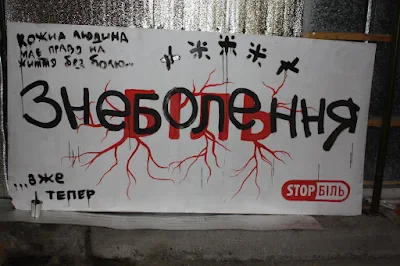 кожна людина
має право на
життя без болю...
* * * *
Знеболення
БІЛЬ
...вже
тепер
STOPБІЛЬ